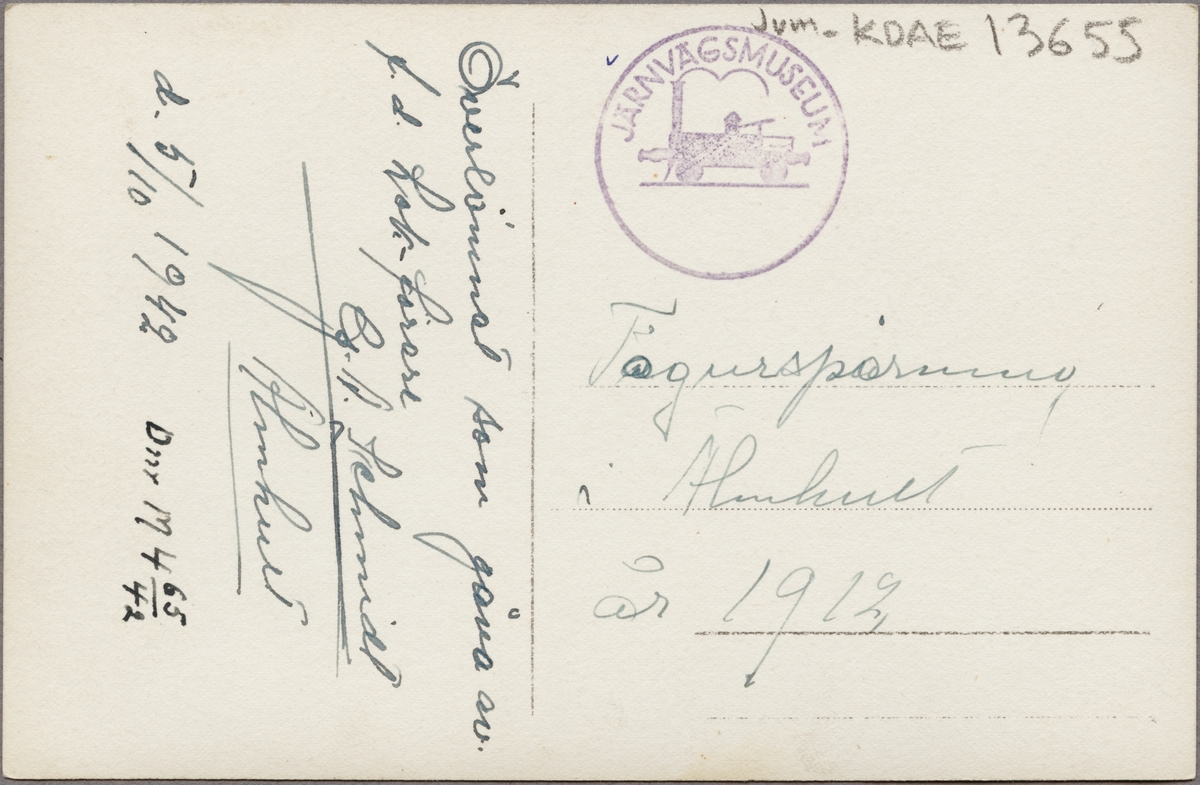 Jvm-KDAE 13655
JÄRNVÄGSMUSEUM
Tågurspårning
Älmhult
år 1912
Överlämnat som gåva av
f.d. Lok-förare
G. V. Schmidt
Älmhult
d. 5/10 1942
Dnr M 4 65/42